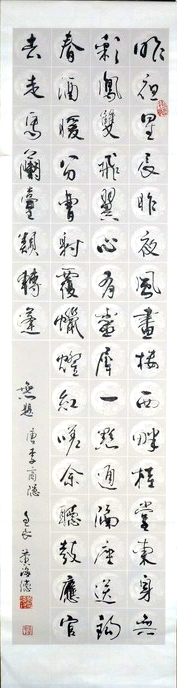 昨夜星辰昨夜風畫樓西畔桂堂東身無
彩鳳雙飛翼心有靈犀一點通隔座送鈎
春酒暖分曹射覆蠟燈紅嗟余聽鼓應官
去走馬蘭臺類轉蓬
無題 唐李商隱